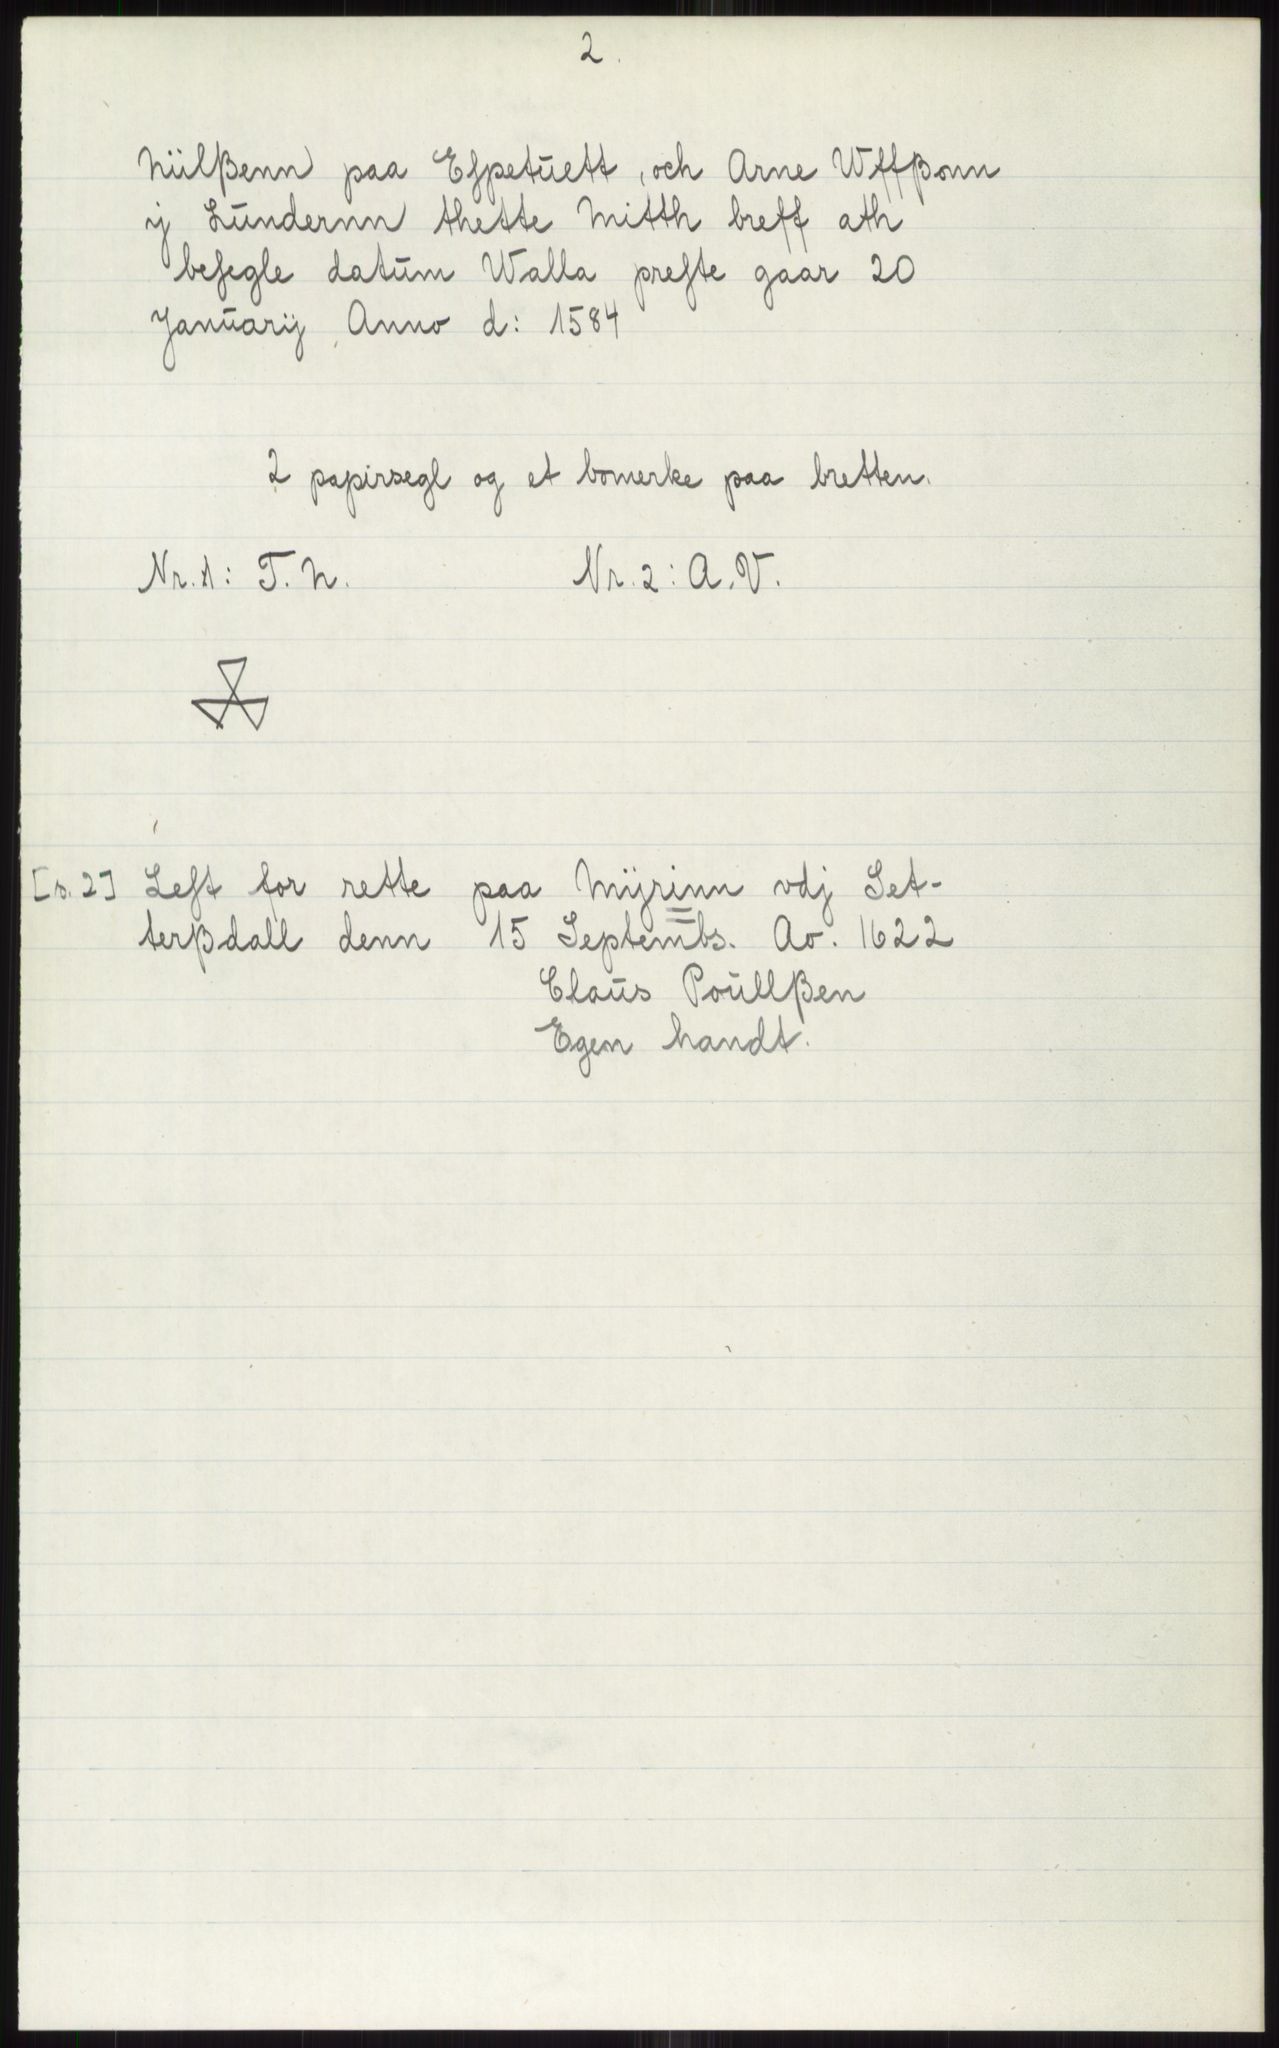 2.
Niilßenn paa Eſpetuett, och Arne Wffßonn
ij Lundernn thette Mitth breff ath
beſegle datum Walla preſte gaar 20
Januarij Anno d: 1584
2 papirsegl og et bomerke paa bretten.
Nr. 1: T. N. Nr. 2: A. V.
[s. 2] Leſt for rette paa Mÿrinn vdj Set-
terßdall denn 15 Septembs. Ao. 1622
Claus Poullßen
Egen handt.